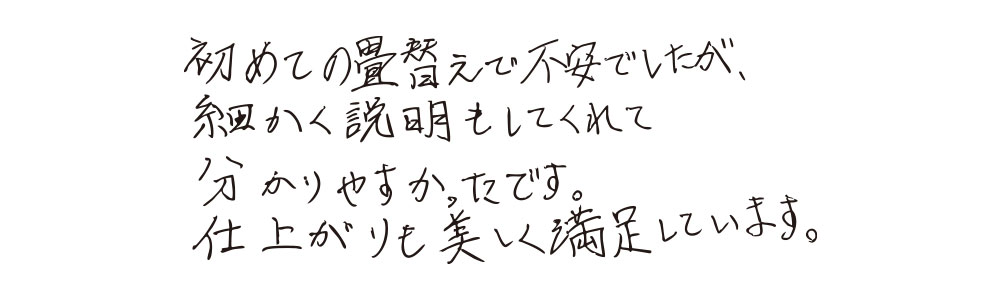 初めての畳替えで不安でしたが、
細かく説明もしてくれて
分かりやすかったです。
仕上がりも美しく満足しています。